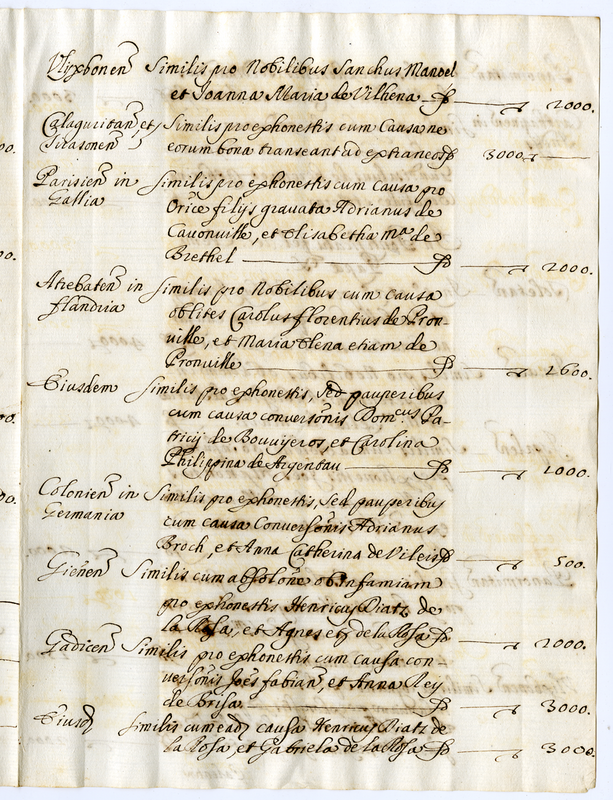 Vlyxbonen̄ Similis pro Nobilibus Sanchus Manoel
et Joanna Maria de Vilhena 2000.
Calaguritan̄ et Similis pro exhonestis cum Causa ne
Tirasonen̄ eorum bona transeant ad extraneos 3000
Parisien̄ in Similis pro exhonestis cum causa pro
Gallia filijs gravata Adrianus de
Cauonuille, et Elisabetha mᵃ de
Brethel 2000.
Atrebaten̄ in Similis pro Nobilibus cum causa
flandria oblites Carolus florentius de Pron-
uille, et Maria Elena etiam de
Pronuille 1600.
Eiusdem Similis pro exhonestis, sed pauperibus
cum causa conversonis Dom.cus Pa-
tricij de Bouuijeros, et Carolina
Philippina de Argentau 1000.
Colonien̄ in Similis pro exhonestis, sed pauperibus
Germania cum causa Conversonis Adrianus
Broch, et Anna Catherina de Vileis 500.
Gienen̄ Similis cum absolone ob Infamiam
pro exhonestis Henricus Diatz de
la Rosa, et Agnes de la Rosa 2000.
Gadicen̄ Similis pro exhonestis cum causa con-
versonis Joes fabian, et Anna Rey
de Brisa 3000.
Eiusd Similis cum ead causa Henricus Diatz de
la Rosa, et Gabriela de la Rosa 3000.